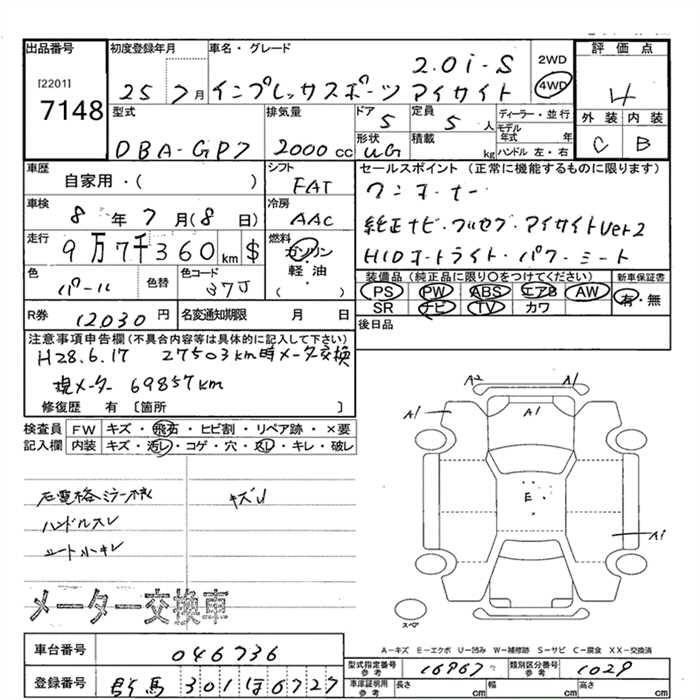 出品番号 初度登録年月 車名・グレード 2WD 評価点
[2201] 2.0i-S 4WD 4
7148 25 7月 インプレッサスポーツ アイサイト
型式 排気量 ドア 定員 ディーラー・並行 外装 内装
DBA-GP7 2000cc 5 5人 モデル年式 年 C B
形状 積載
UG kg ハンドル 左・右
車歴 シフト セールスポイント(正常に機能するものに限ります)
自家用・( ) FAT ワンオーナー
車検 冷房 純正ナビ・フルセグ・アイサイトVer2
8年7月(8日) AAC HIDオートライト・パワーシート
走行 燃料
9万7千360km $ ガソリン・軽油 ( )
装備品(純正品に限り○をつけてください) 新車保証書
色 色替 色コード PS PW ABS エアB AW 有・無
パール 37J SR ナビ TV カワ
R券 12030円 名変通知期限 月 日 後日品
注意事項申告欄(不具合内容等は具体的に記入して下さい)
H28.6.17 27503km時メーター交換
現メーター 69857km
修復歴 有 〔箇所 〕
検査員 FW キズ・飛石・ヒビ割・リペア跡・×要
記入欄 内装 キズ・汚レ・コゲ・穴・スレ・キレ・破レ
右電格ミラー キズ
ハンドルスレ
シート小キレ
メーター交換車
A2 A1
A1 A1
E
A1
スペア
A-キズ E-エクボ U-凹み W-補修跡 S-サビ C-腐食 XX-交換済
車台番号 046736
登録番号 群馬 301 ほ 6727
型式指定番号 参考 16967 類別区分番号 参考 1029
車庫証明用 参考 長さ 幅 高さ
cm cm cm